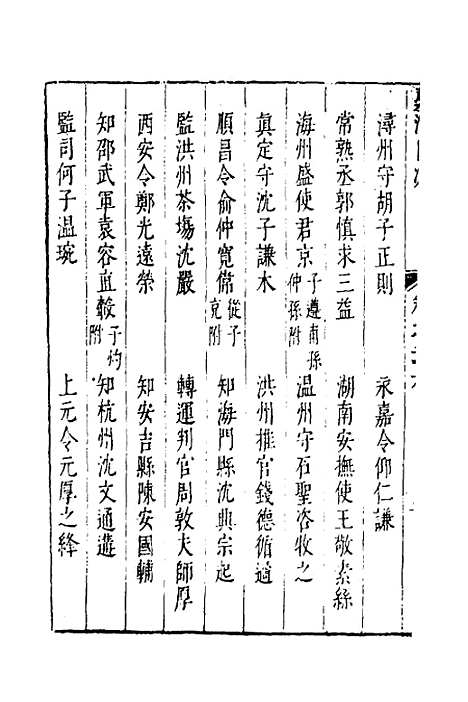 潯州守胡子正則　永嘉令仰仁謙
常熟丞郭慎求三益　湖南安撫使王敬素絲
海州盛使君京 子遵甫孫仲孫附　溫州守石聖咨牧之
真定守沈子謙木　洪州推官錢德循遹
順昌令俞仲寬偉 從子附　知海門縣沈興宗起
監洪州茶塲沈嚴　轉運判官周敦夫師厚
西安令鄭光遠榮　知安吉縣陳安國輔
知邵武軍袁容直轂 子灼附　知杭州沈文通遘
監司何子溫琬　上元令元厚之絳